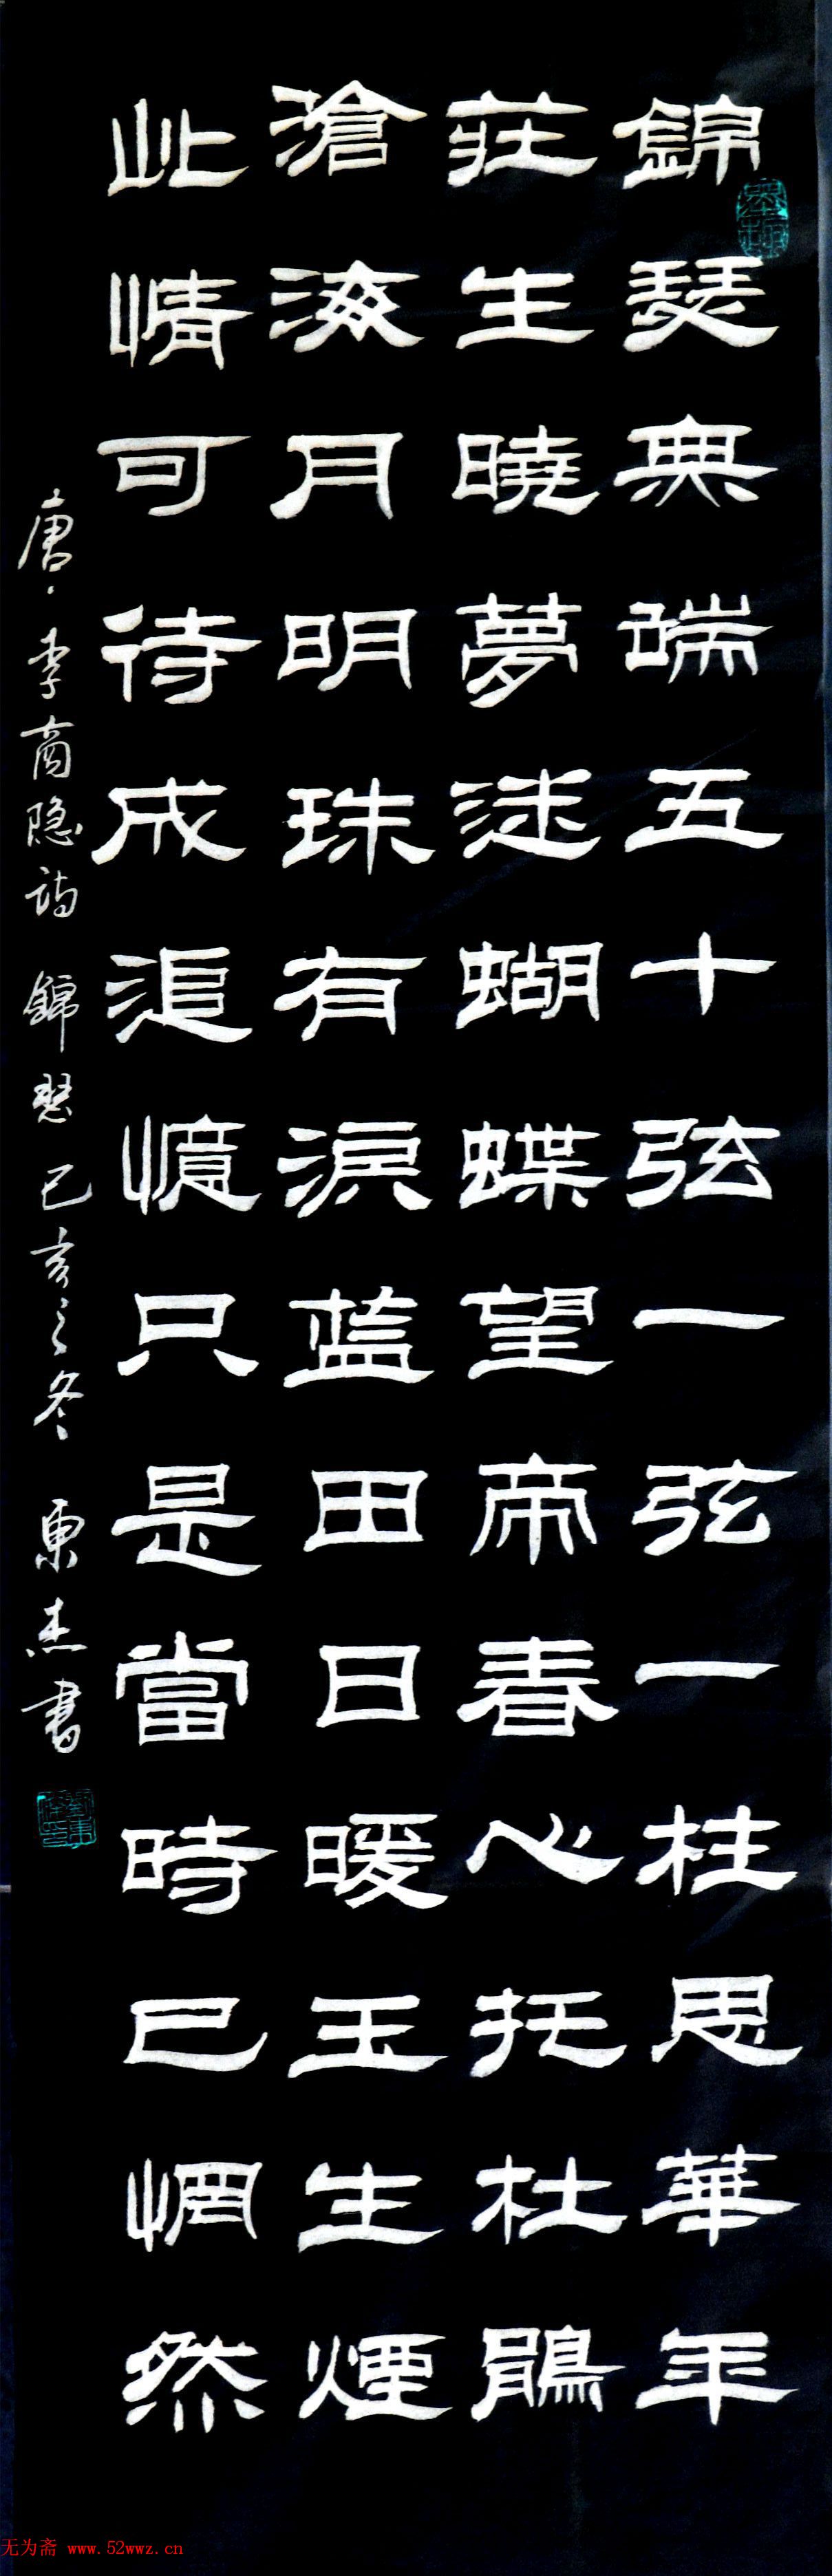 錦瑟無端五十弦一弦一柱思華年
莊生曉夢迷蝴蝶望帝春心托杜鵑
滄海月明珠有淚蓝田日暖玉生煙
此情可待成追憶只是當時已惘然
唐、李商隐诗 錦瑟 己亥之冬 東杰書
无为斋 www.52wwz.cn